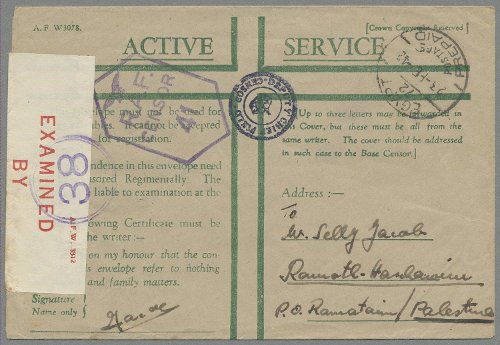 A. F. W3078.
[Crown Copyright Reserved]
ACTIVE SERVICE
must not be used for
It cannot be accepted
for registration.
pondence in this envelope need
sored Regimentally. The
liable to examination at the
owing Certificate must be
the writer:—
on my honour that the con-
is envelope refer to nothing
and family matters.
Signature
Name only
[Up to three letters may be forwarded in
this Cover, but these must be all from the
same writer. The cover should be addressed
in such case to the Base Censor.]
Address:—
To
Mr. Selly Jacob
Ramoth-Hashavim
P.O. Ramataim / Palestine
EXAMINED
BY
38
R.A.F.
CENSOR
EGYPT
POSTAGE
PREPAID